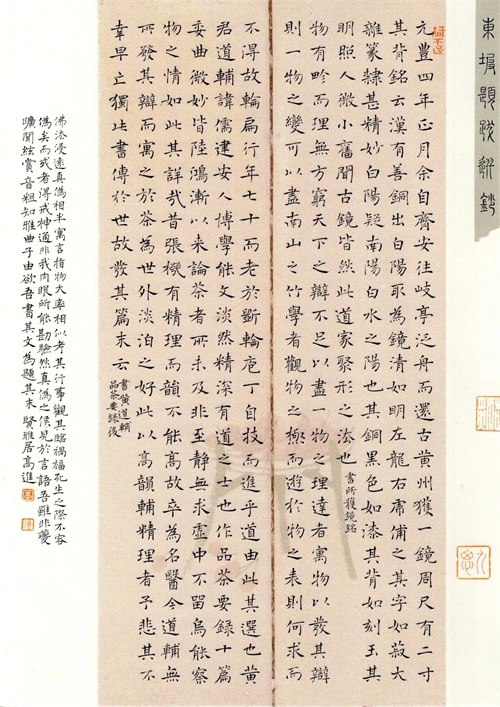 東坡題跋節鈔
元豐四年正月余自齊安往岐亭泛舟而還古黄州獲一鏡周尺有二寸
其背銘云漢有善銅出白陽取為鏡清如明左龍右虎俌之其字如菽大
雜篆隸甚精妙白陽疑南陽白水之陽也其銅黑色如漆其背如刻玉其
明照人微小舊聞古鏡皆然此道家聚形之法也 書所獲鏡銘
物有畛而理無方窮天下之辯不足以盡一物之理達者寓物以發其辯
則一物之變可以盡南山之竹學者觀物之極而遊於物之表則何求而
不得故輪扁行年七十而老於斲輪庖丁自技而進乎道由此其選也黄
君道輔諱儒建安人博學能文淡然精深有道之士也作品茶要録十篇
委曲微妙皆陸鴻漸以来論茶者所未及非至靜無求虚中不留烏能察
物之情如此其詳哉昔張機有精理而韻不能高故卒為名醫今道輔無
所發其辯而寓之於茶為世外淡泊之好此以高韻輔精理者予悲其不
幸早亡獨此書傳於世故發其篇末云
書黄道輔
品茶要録後
佛法浸遠真偽相半寓言指物大率相似考其行事觀其臨禍福死生之際不容
偽矣而或者得戒神通非我肉眼所能勘驗然真偽之候見於言語吾雖非夔
曠聞絃賞音粗知雅曲子由欲吾書其文為題其末 賢雅居高進